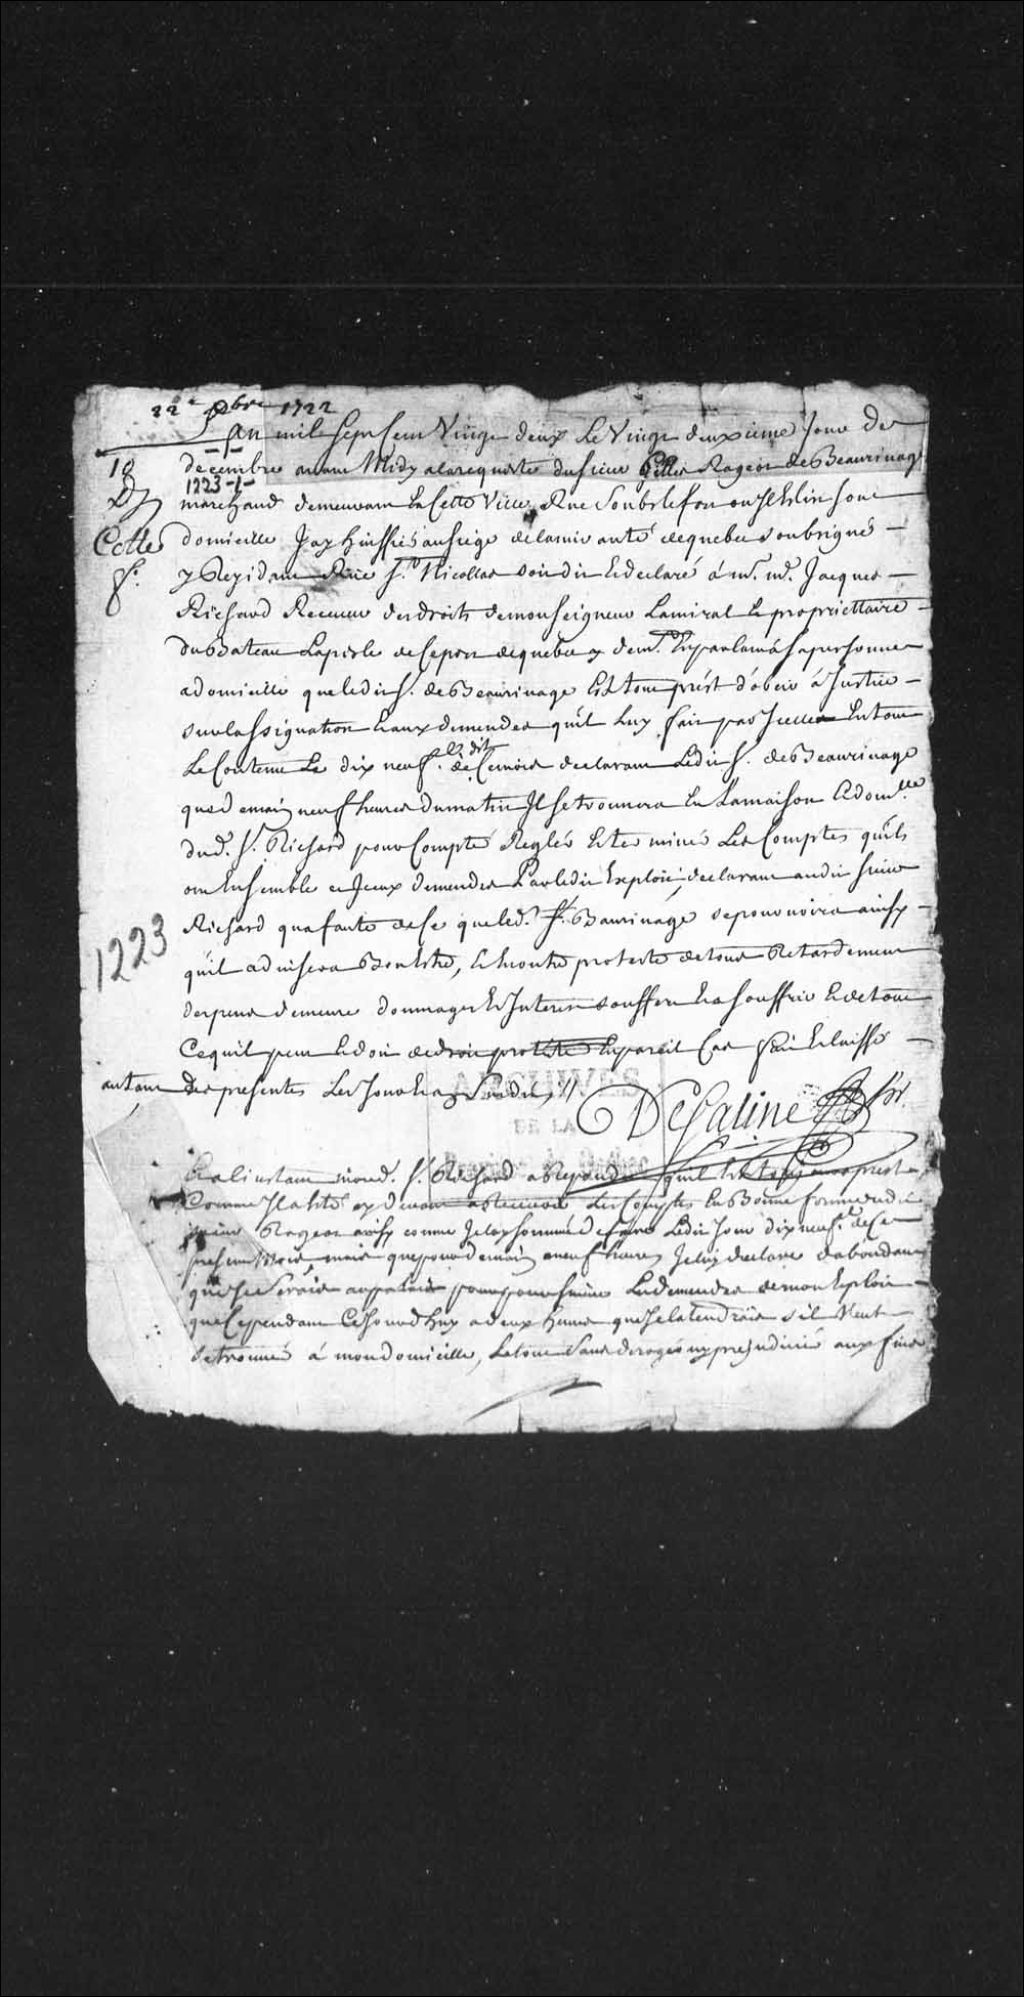 22e Xbre 1722
L'an mil sept cent Vingt deux Le Vingt deuxieme Jour de
18 decembre avant Midy alarequeste du sieur Gilles Rageot de Beaurinage
1223
marchand demeurant En Cette Ville Rue Soubslefort ou Il Eslit son
Cotte domicille Jay huissier au siege de lamirauté dequebec soubsigné
g. y Rezidant Rue St. Nicollas soit dit Et declaré á mr. me. Jacques
Richard Receveur des droits de monseigneur Lamiral Et proprietaire
du Bateau Laperle de ceport dequebec y demt. En parlant á sa personne
a domicille que ledit Sr. de Beaurinage Est tout prést d'obeir á Justice
sur lassignation Et aux demendes quil Luy fait par Icelle En tout
Le Contenu Le dix neuf. dudit de Ce mois declarant Ledit Sr. de Beaurinage
que demain neuf heures du matin Il se trouvera En La maison Et domlle
dud. Sr. Richard pour Compter Regler Et terminer Les Comptes quils
ont Ensemble et Iceux demendes Par ledit Exploit, declarant audit sieur
Richard qua faute de ce que led. Sr. Beaurinage se pourvoira ainsy
1223
quil advisera Bon Estre, Et proteste de tous Retardement
despens demeure dommages Et Interest souffert Et a souffrir Et de tout
Cequil peut Et doit de droit protester En pareil Cas fait Et laissé
autant Des presentes Les Jour Et an Susdit //
DeSaline hr.
ARCHIVES
DE LA
Et a linstant mond. Sr. Richard a Repondu quil Est toujours prest
Comme Il a Esté cy devant a Recevoir Les Comptes En Bonne forme dudit
sieur Rageot ainsy comme Je lay sommé de faire Ledit Jour dix neufe. de Ce
present Mois, mais que pour demain a neuf heures Je luy declare dabondant
que Je serais au palais pour poursuivre Les demendes de mon Exploit
que Cependant Ce Jourdhuy a deux heures que Je latendrais s'il Veut
se trouver á mon domicille, Le tout sans deroger ny prejudicier aux fins